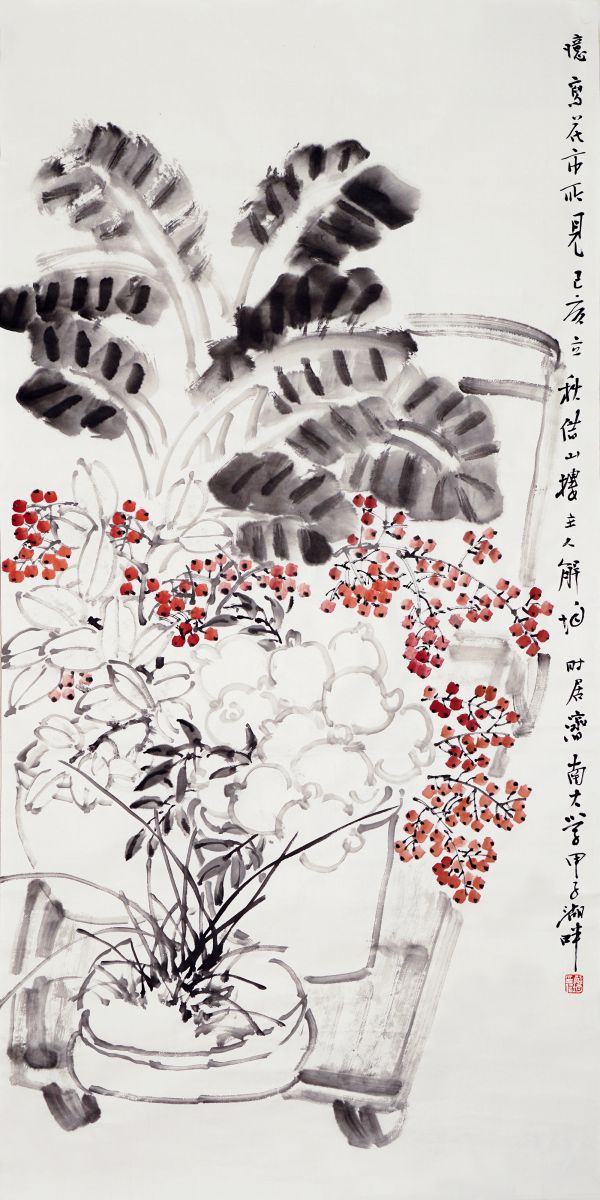 憶寫花市所見己亥立秋借山樓主人解时居濟南大學甲子湖畔